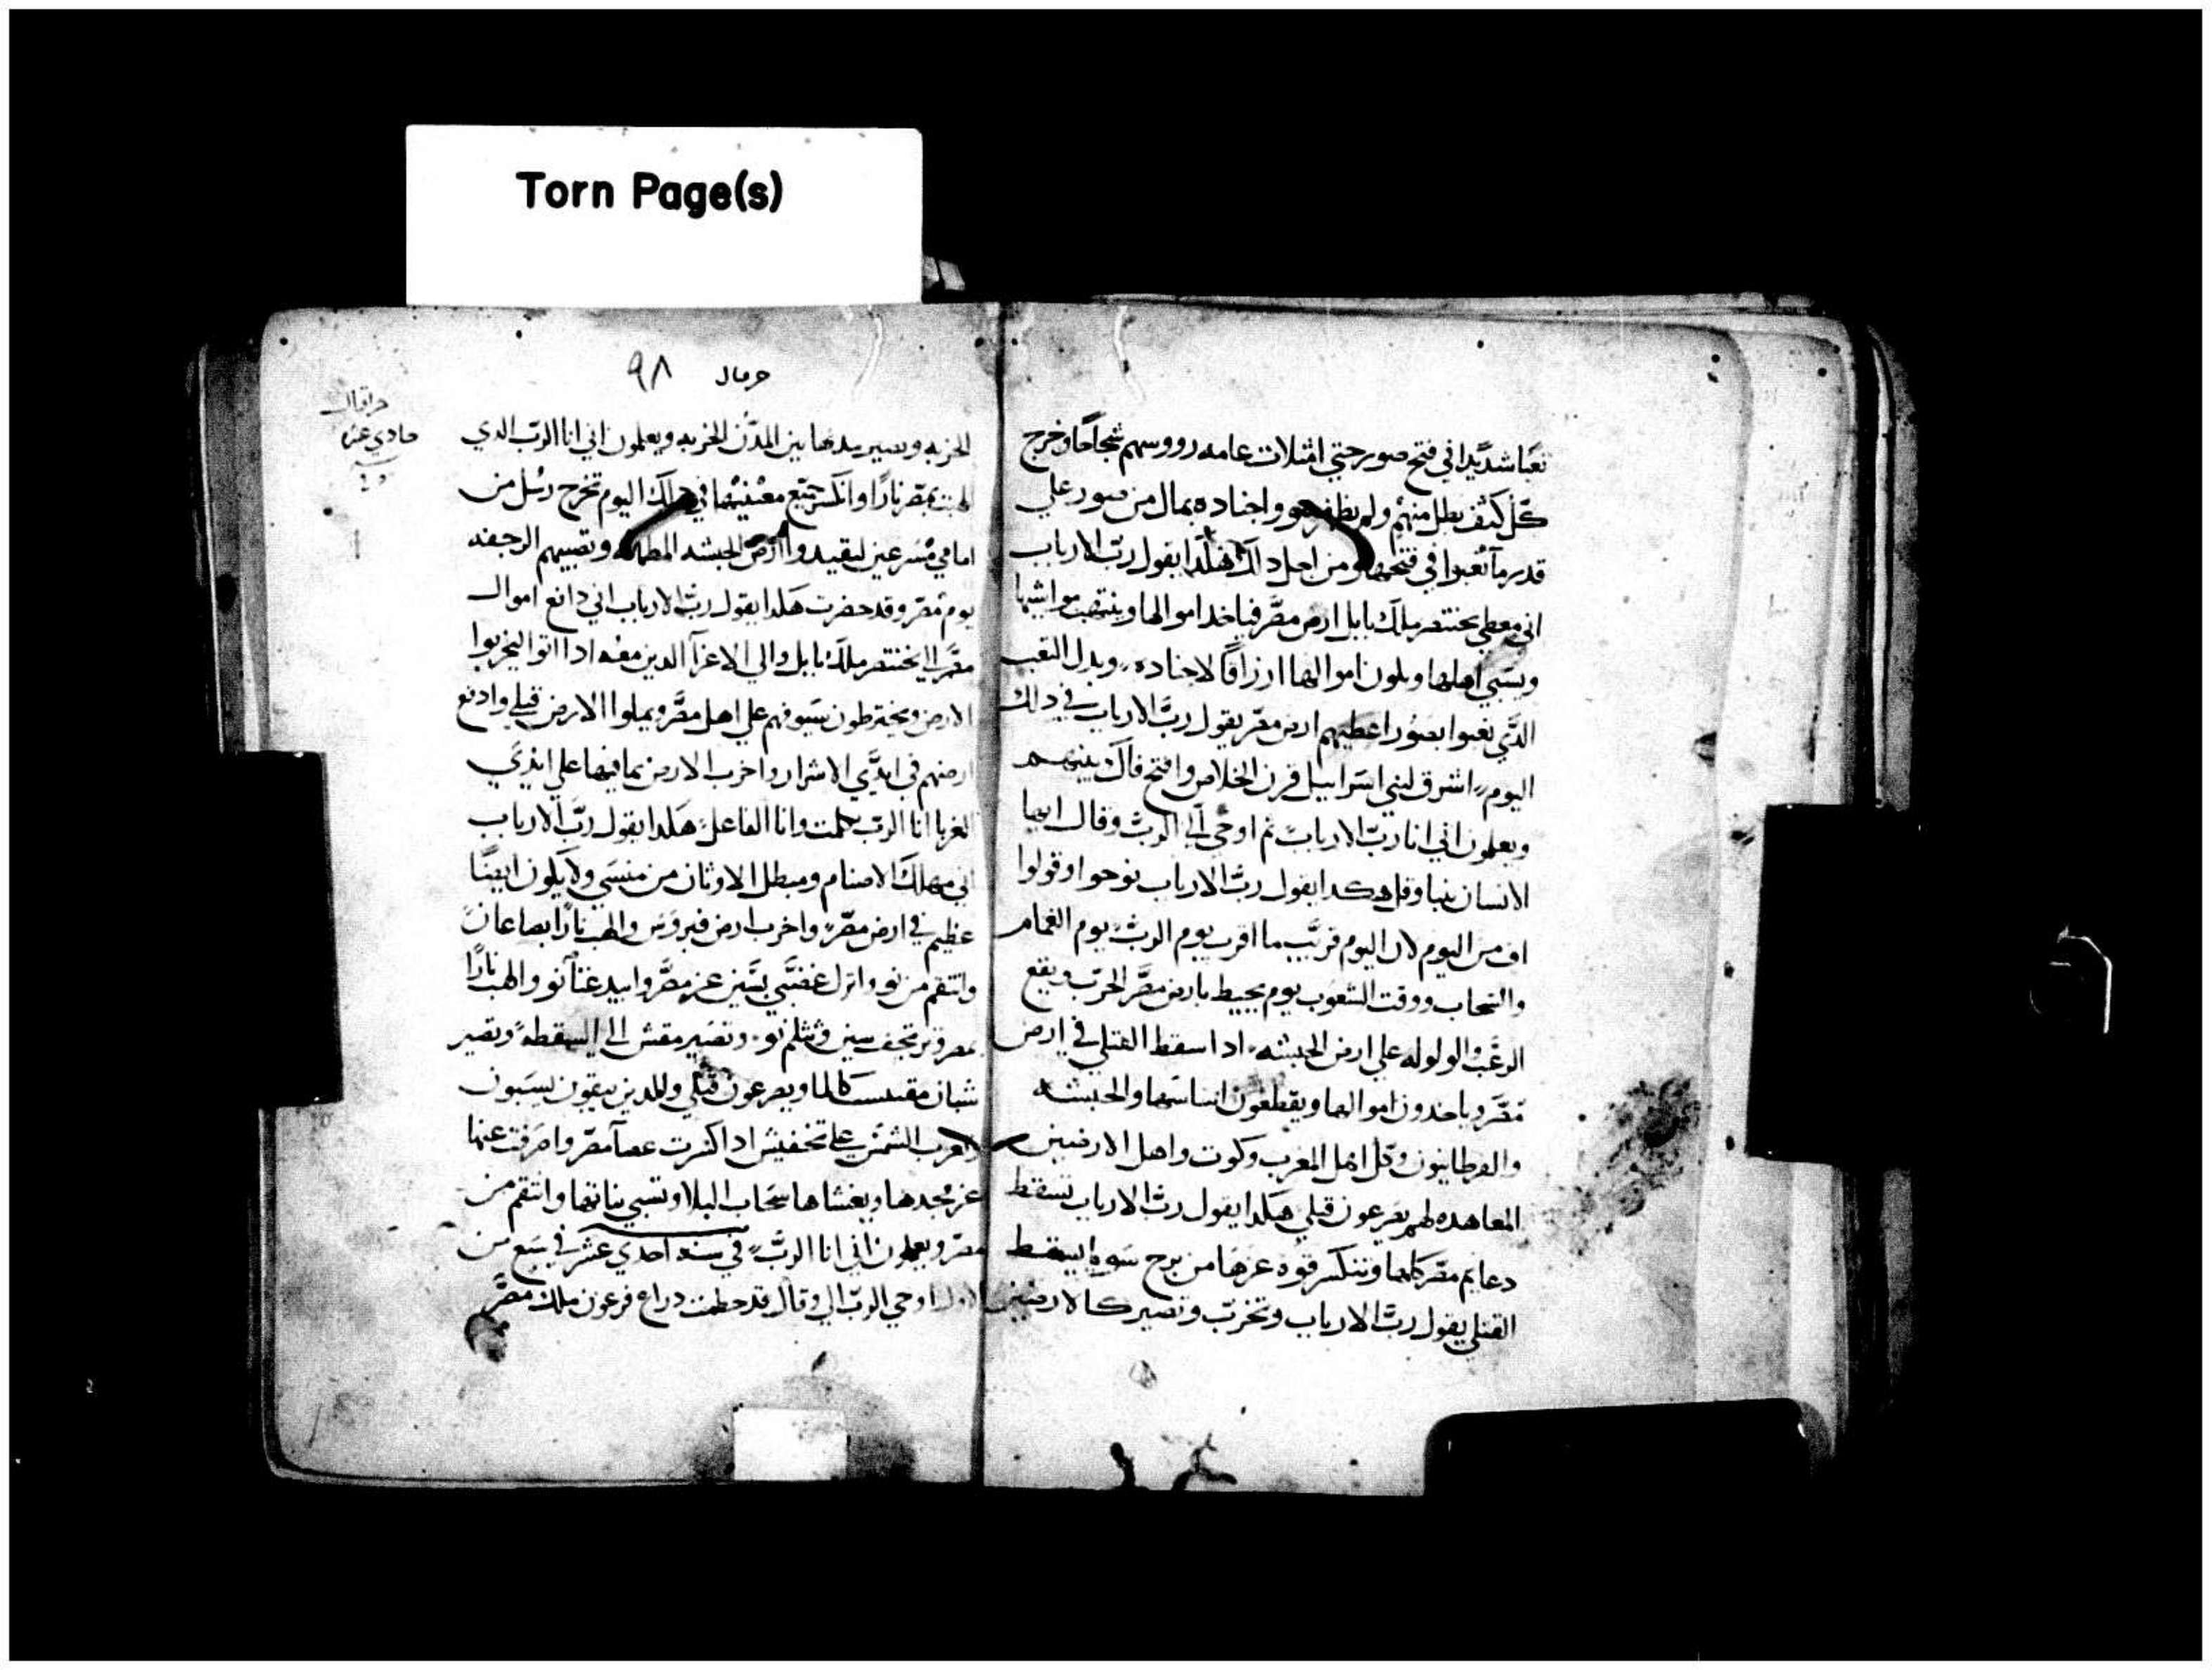 Torn Page(s)
تعبا شديدا في فتح صور حتي امتلات عامه رووسهم شجاحا وخرج
كل كتف بطل منهم ولم يظفر هو واجناده بمال من صور علي
قدر ما تعبوا في فتحها ومن اجل دلك هكدا يقول رب الارباب
اني معطي بختنصر ملك بابل ارض مصر فياخد اموالها وينتهب مواشيها
ويسبي اهلها ويكون اموالها ارزاقا لاجناده وبدل التعب
الدي تعبوا بصور اعطيهم ارض مصر يقول رب الارباب في دلك
اليوم اشرق لبني اسراييل قرن الخلاص وافتح فاك بينهم
ويعلمون اني انا رب الارباب ثم اوحي الي الرب وقال ايها
الانسان تنبا وقل هكدا يقول رب الارباب نوحوا وقولوا
اف من اليوم لان اليوم قريب ما اقرب يوم الرب يوم الغمام
والسحاب ووقت الشعوب يوم يحيط بارض مصر الحرب ويقع
الرعب والولوله علي ارض الحبشه ادا سقط القتلي في ارض
مصر وياخدون اموالها ويقطعون اساسها والحبشه
والقرطانيون وكل اهل المغرب وكوت واهل الارضين
المعاهده لهم يصرعون قبلي هكدا يقول رب الارباب تسقط
دعايم مصر كلها وتنكسر قوة عزها من برج سويا يسقط
القتلي يقول رب الارباب وتخرب وتصير كالارضين
حرمال ٩٨
حزقيال
حادي عشر
الخربه وتصير مدنها بين المدن الخربه ويعلمون اني انا الرب الدي
الهبت بمصر نارا وانكسر جميع معينيها في دلك اليوم تخرج رسل من
امامي مسرعين ليقيدوا ارض الحبشه المطمانه وتصيبهم الرجفه
يوم مصر وقد حضرت هكدا يقول رب الارباب اني دافع اموال
مصر الي بختنصر ملك بابل والي الاعزا الدين معه ادا اتوا ليخربوا
الارض ويخترطون سيوفهم علي اهل مصر ويملوا الارض قتلي وادفع
ارضهم في ايدي الاشرار واخرب الارض بما فيها علي ايدي
الغربا انا الرب تكلمت وانا الفاعل هكدا يقول رب الارباب
اني مهلك الاصنام ومبطل الاوثان من منسي ولا يكون ايضا
عظيم في ارض مصر واخرب ارض فيروس والهب نارا بصاعان
وانتقم من نو وانزل غضبي بسين عز مصر وابيد غنا نو والهب نارا
بمصر وترتجف سين وتثلم نو وتصير مقنس الي السقطه وتصير
شبان مقبست كالما ويصرعون قتلي وللدين يبقون يسبون
وتغرب الشمس علي تخفيس ادا كسرت عصا مصر واصرفت عنها
عز مجدها ويغشاها سحاب البلا وتسبي بناتها وانتقم من
مصر ويعلمون اني انا الرب في سنه احدي عشر في سبع من
الاول اوحي الرب الي وقال قد حطمت دراع فرعون ملك مصر